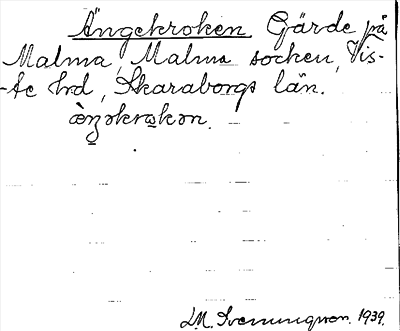 Ängekroken Gärde på
Malma, Malma socken, Vis-
-te hd, Skaraborgs län.
L.M. Svenungsson. 1939.